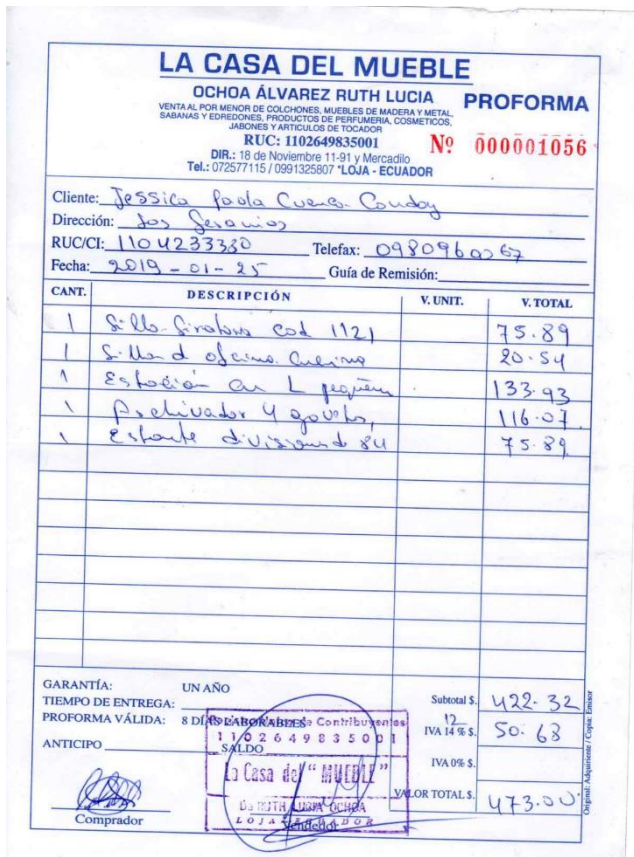 LA CASA DEL MUEBLE
OCHOA ÁLVAREZ RUTH LUCIA
PROFORMA
VENTA AL POR MENOR DE COLCHONES, MUEBLES DE MADERA Y METAL,
SABANAS Y EDREDONES, PRODUCTOS DE PERFUMERIA, COSMETICOS,
JABONES Y ARTICULOS DE TOCADOR
RUC: 1102649835001
Nº 000001056
DIR.: 18 de Noviembre 11-91 y Mercadilo
Tel.: 072577115 / 0991325807 *LOJA - ECUADOR
Cliente: Jessica Paola Cuenca Condoy
Dirección: Los Geranios
RUC/CI: 1104233330 Telefax: 0980960267
Fecha: 2019-01-25 Guía de Remisión:
CANT. DESCRIPCIÓN V. UNIT. V. TOTAL
1 Silla Giratoria cod 1121 75.89
1 Silla d oficina 20.54
1 Estación en L pequeña 133.93
1 Archivador 4 gavetas, 116.07
1 Estante divisiones d 84 75.89
GARANTÍA: UN AÑO
Subtotal $. 422.32
TIEMPO DE ENTREGA:
PROFORMA VÁLIDA: 8 DÍAS LABORABLES
12
IVA 14 % $. 50.68
Contribuyentes
1102649835001
ANTICIPO SALDO
IVA 0% $.
La Casa del "MUEBLE"
VALOR TOTAL $. 473.00
De RUTH LUCIA OCHOA
LOJA - ECUADOR
Comprador Vendedor
Original: Adquiriente / Copia: Emisor